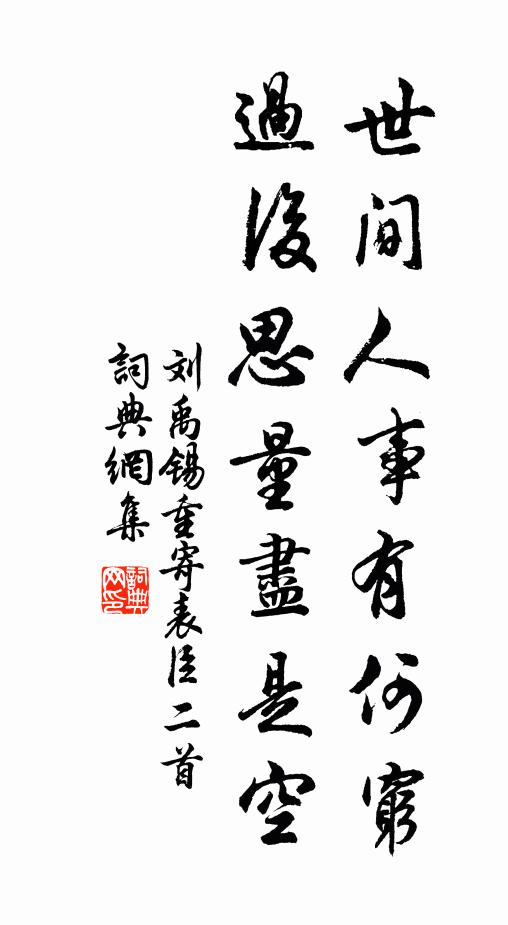 世间人事有何窮
過後思量盡是空
刘禹锡重寄表臣二首
詞典網集
詞典网印